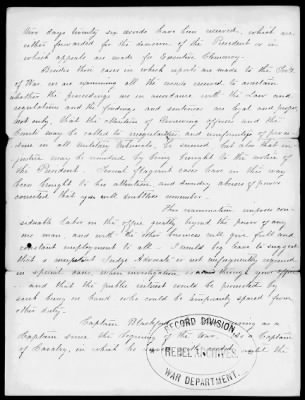 five days twenty six records have been received, which are
either forwarded for the decision of the President or in
which appeals are made for Executive Clemency.
Besides those cases in which appeals are made to the Sec'y
of War we are examining all the records received to ascertain
whether the proceedings are in accordance with the Law and
regulations and the findings and sentence are legal and proper
not only, that the attention of Reviewing officers and the
Courts may be called to irregularities and conformity of proce-
dure in all military tribunals, be secured, but also that in-
justice may be remedied by being brought to the notice of
the President. Several flagrant cases have in this way
been brought to his attention, and sundry abuses of power
corrected that you will doubtless remember.
This examination imposes con-
siderable labor in the office greatly beyond the power of any
one man and with the other business will give full and
constant employment to all. I would beg leave to suggest
that a competent Judge Advocate is not infrequently required
in special cases, when investigation is through your office
and that the public interest would be promoted by
such being on hand who could be temporarily spared from
other duty.
Captain as a
Captain since the beginning of the War. is a Captain
of Cavalry, in which he might the
RECORD DIVISION
REBEL ARCHIVES
WAR DEPARTMENT.